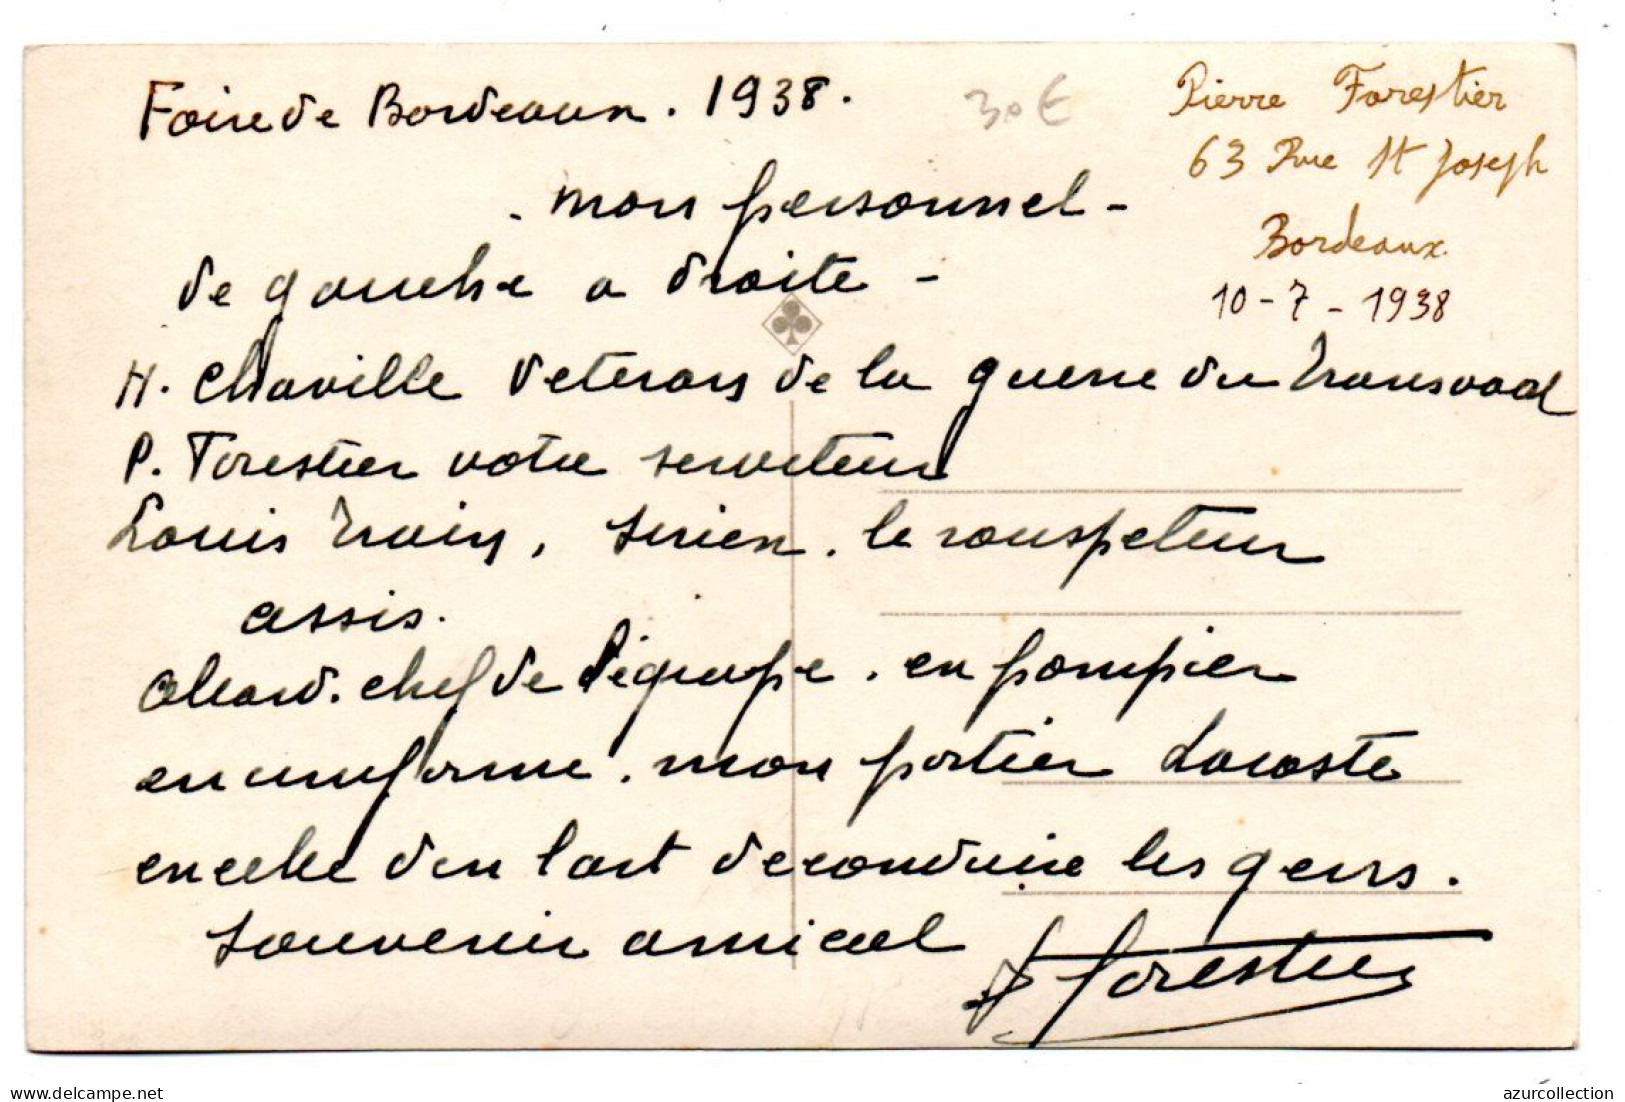 Foire de Bordeaux. 1938.
30€
Pierre Forestier
63 Rue St Joseph
Bordeaux.
10-7-1938
- mon personnel -
de gauche a droite -
H. Chaville veterans de la guerre du Transvaal
P. Forestier votre serviteur
Louis , . le rouspeteur
assis.
chef de . en pompier
en uniforme . mon portier Lacoste
dans l'art de conduire les gens.
Souvenir amical
Forestier
delcampe.net
azurcollection